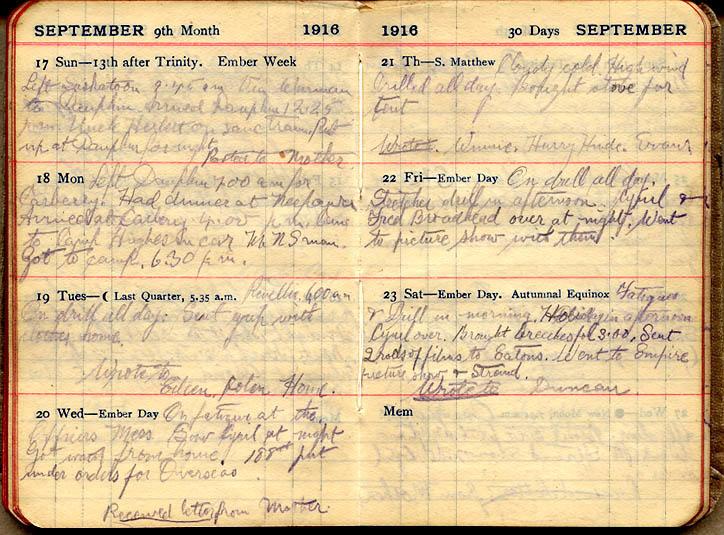 SEPTEMBER 9th Month 1916
17 Sun—13th after Trinity. Ember Week
Left Saskatoon 9.45 am
to Dauphin Arrived Dauphin 12.25
Uncle Herbert on same train Put
up at Dauphin for night
Mother
18 Mon Left Dauphin 700 am for
Carberry. Had dinner at Neepawa
Arrived at Carberry 4.00 p.m.
to Camp Hughes in car
Got to camp. 6.30 p.m.
19 Tues—( Last Quarter, 5.35 a.m. Reveille 6.00 am
On drill all day. Sent grip with
clothes home.
Wrote to
Eileen, Home.
20 Wed—Ember Day On fatigue at the
Officers Mess. Saw Cyril at night
Got from home. 188th put
under orders for Overseas.
Received letter from Mother.
1916 30 Days SEPTEMBER
21 Th—S. Matthew Cloudy cold. High wind
Drilled all day. Bought stove for
tent
Wrote. Winnie. Harry Hinde. Evans
22 Fri—Ember Day On drill all day.
drill in afternoon. Cyril &
Fred Broadhead over at night. Went
to picture show with them.
23 Sat—Ember Day. Autumnal Equinox Fatigues
& Drill in morning. Holiday in afternoon
Cyril over. Bought breeches for 3.00, Sent
2 rolls of films to Eatons. Went to Empire
picture show & Strand.
Wrote to Duncan
Mem